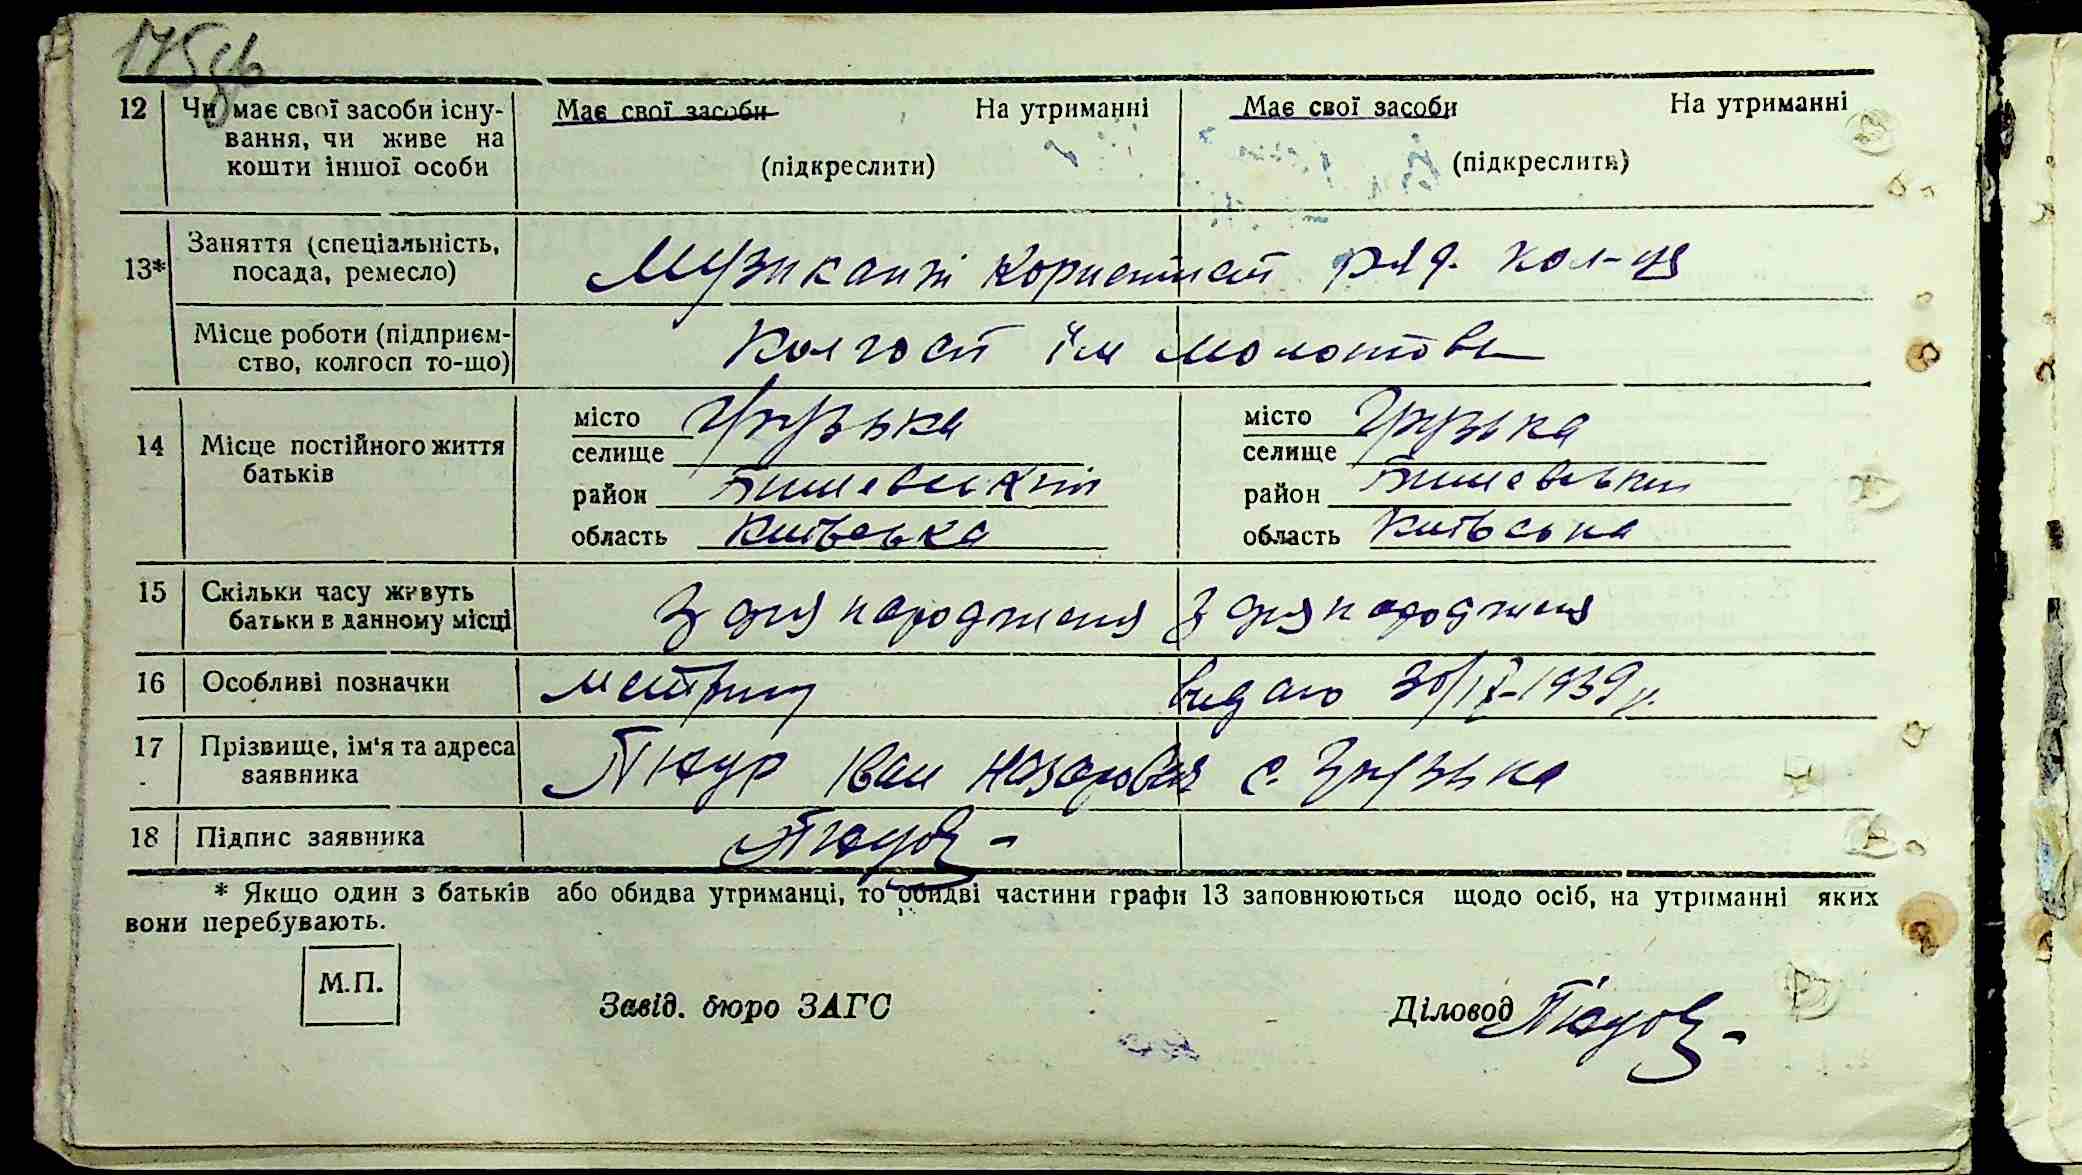 175 зв
12 Чи має свої засоби існу- Має свої засоби На утриманні Має свої засоби На утриманні
вання, чи живе на
кошти іншої особи (підкреслити) (підкреслити)
13* Заняття (спеціальність,
посада, ремесло) Музикант ряд. кол-ця
Місце роботи (підприєм- Колгосп ім Молотова
ство, колгосп то-що)
14 Місце постійного життя місто Грузька місто Грузька
батьків селище селище
район Бишевський район Бишевський
область Київська область Київська
15 Скільки часу живуть З дня народження З дня народження
батьки в данному місці
16 Особливі позначки метрику видано 30/IX-1939 р.
17 Прізвище, ім'я та адреса Іван Назарович с. Грузька
заявника
18 Підпис заявника
* Якщо один з батьків або обидва утриманці, то обидві частини графи 13 заповнюються щодо осіб, на утриманні яких
вони перебувають.
М.П.
Завід. бюро ЗАГС Діловод